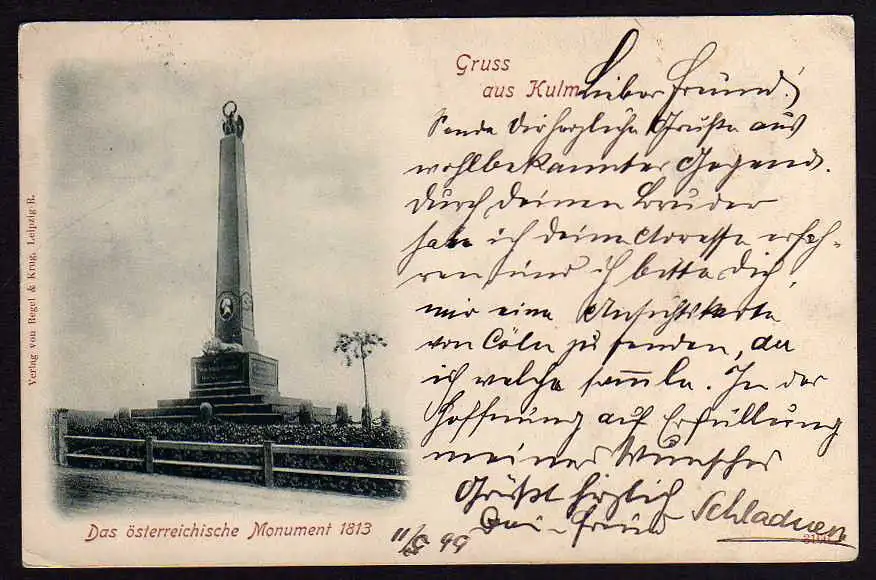 Gruss
aus Kulm
Lieber Freund!
Sende Dir herzliche Grüße aus
wohlbekannter Gegend.
Durch deinen Bruder
habe ich deine Adresse erfah-
ren und ich bitte Dich,
mir eine Ansichtskarte
von Cöln zu senden, da
ich welche sam̅le. In der
Hoffnung auf Erfüllung
meines Wunsches
Grüßt herzlich
Dein Freund Schladnen
11/5 99
Das österreichische Monument 1813
Verlag von Regel & Krug, Leipzig-R.